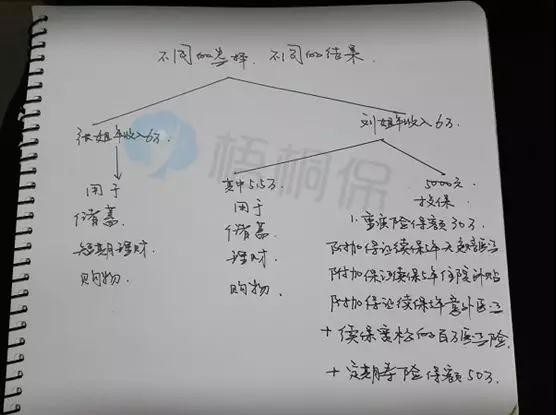 不同的选择,不同的结果.
张姐年收入6万
刘姐年收入6万.
用于
储蓄
短期理财
购物.
其中5.5万
用于
储蓄
理财
购物
5000元
投保
1.重疾险保额30万
附加保证续保5年大额医疗
附加保证续保5年住院补贴
附加保证续保5年意外医疗
+续保宽松的百万医疗险.
+定期寿险保额50万.
梧桐保